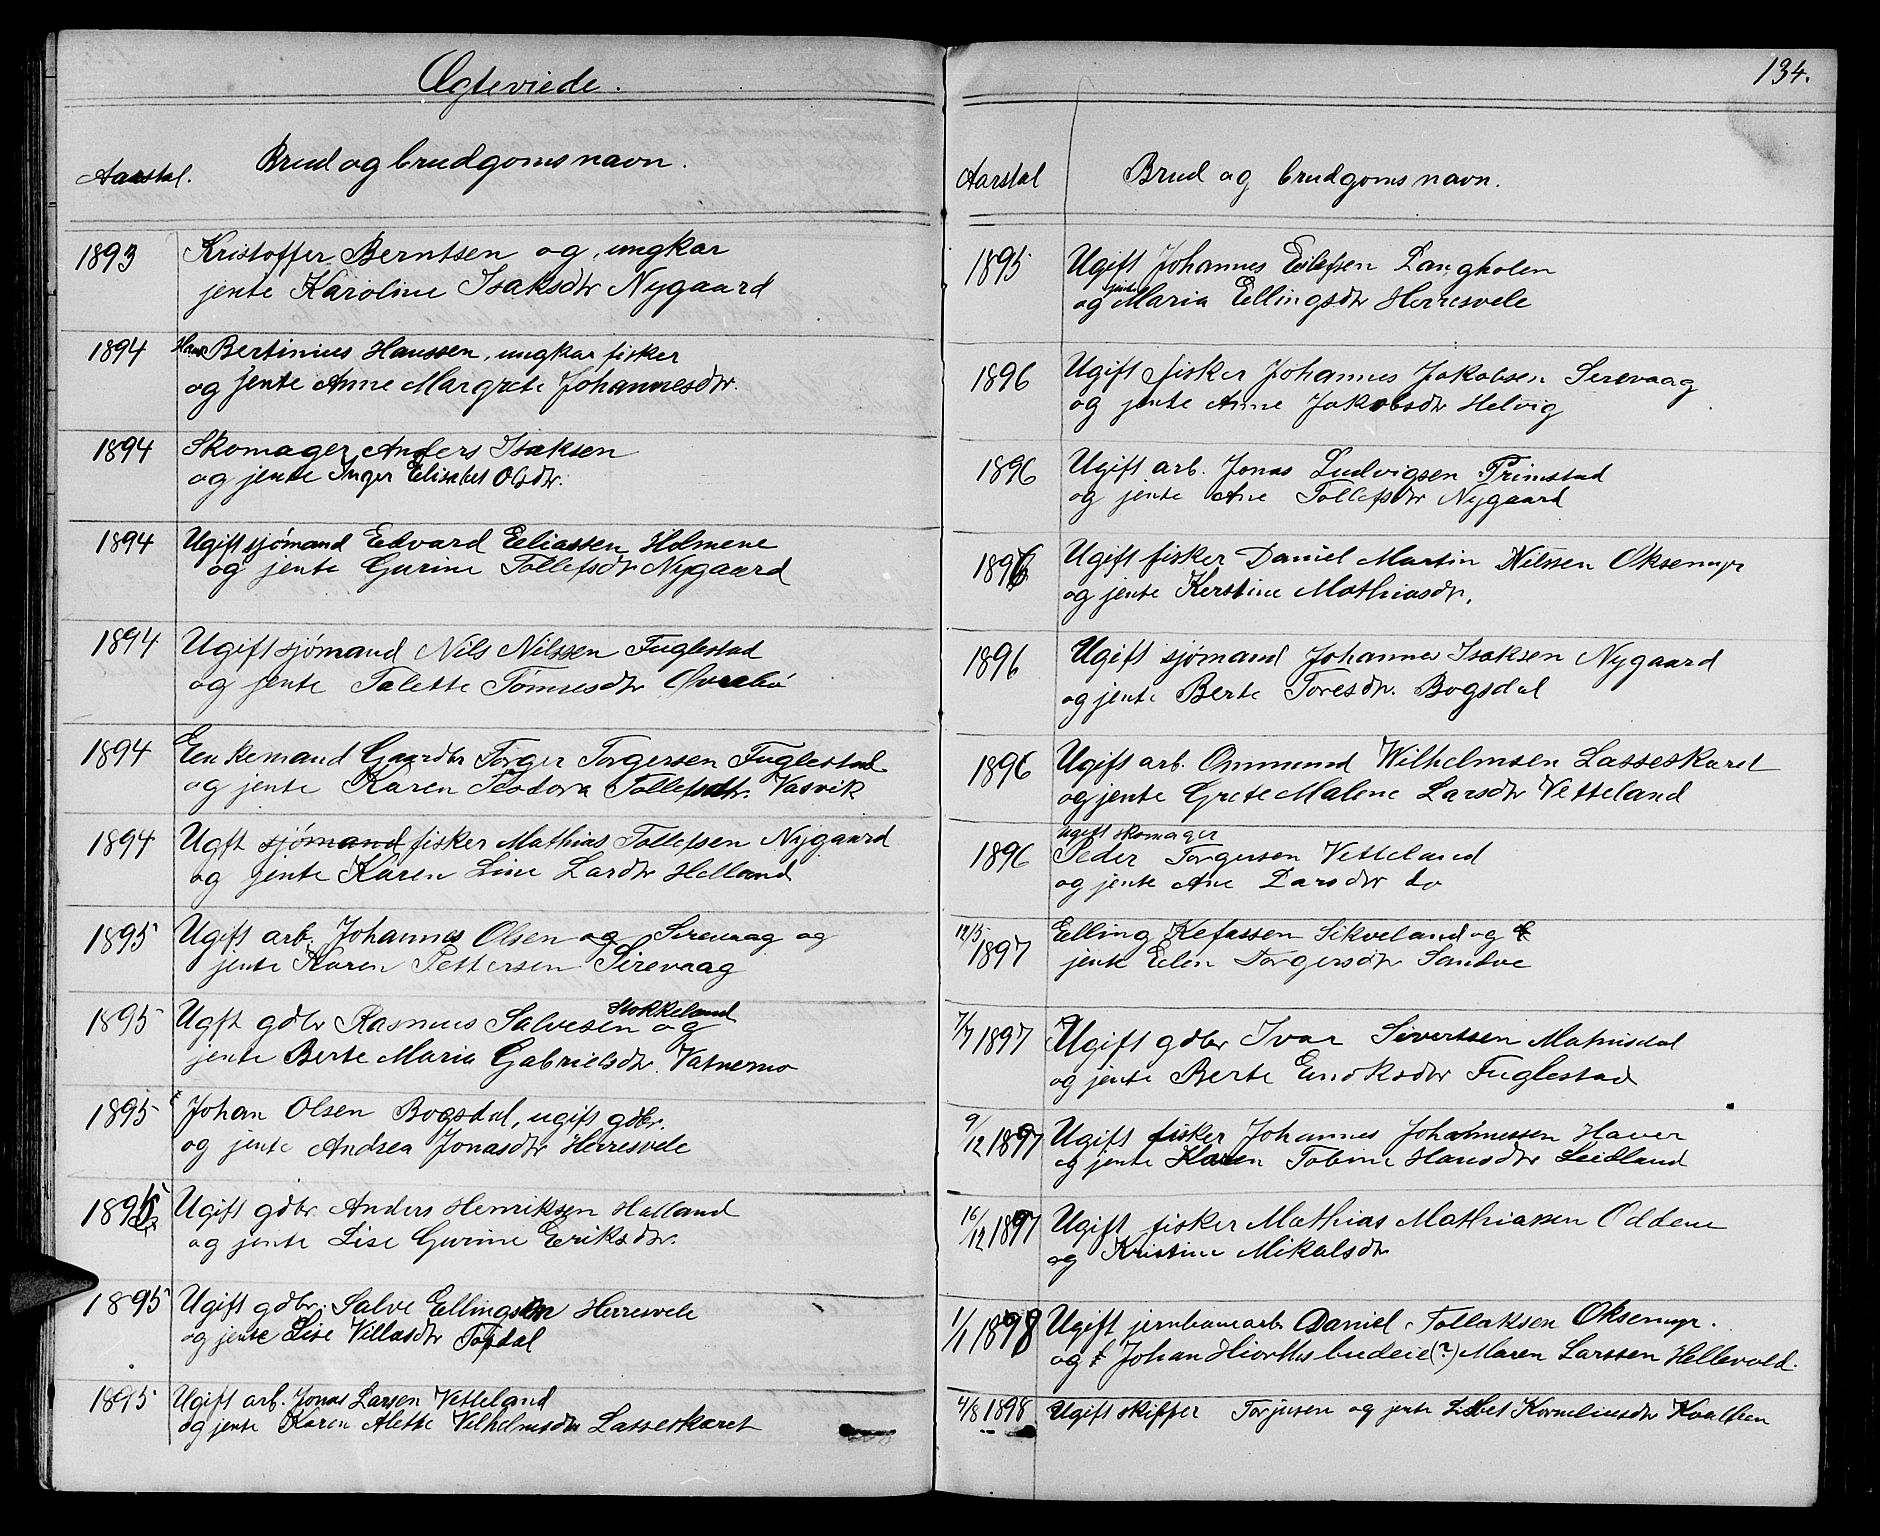 Ægteviede.
Aarstal. Brud og brudgoms navn.
1893 Kristoffer Berntsen og, ungkar
jente Karoline Isaksdtr Nygaard
1894 Hans Bertinius Hanssen, ungkar fisker
og jente Anne Margrete Johannesdtr.
1894 Skomager Anders Isaksen
og jente Inger Elisabet Olsdtr.
1894 Ugift sjømand Edvard Eeliassen Holmene
og jente Gurine Tollefsdtr Nygaard
1894 Ugift sjømand Nils Nilssen Fuglestad
og jente Talette Tønnesdtr Øvrebø
1894 Enkemand Gaardbr Torger Torgersen Fuglestad
og jente Karen Teodora Tollefsdtr. Vasvik
1894 Ugft sjømand fisker Mathias Tollefsen Nygaard
og jente Karen Line Larsdtr Helland
1895 Ugift arb. Johannes Olsen og Sirevaag og
jente Karen Pettersen Sirevaag
1895 Ugft gdbr Rasmus Salvesen Stokkeland og
jente Berte Maria Gabrielsdtr. Vatnemo
1895 Johan Olsen Bogsdal, ugift gdbr.
og jente Andrea Jonasdtr Herresvele
1895 Ugift gdbr. Anders Henriksen Halland
og jente Lise Gurine Eeriksdtr.
1895 Ugift gdbr. Salve Eellingsen Herresvele
og jente Lise Villasdtr Topdal
1895 Ugift arb. Jonas Larsen Vetteland
og jente Karen Alette Vilhelmsdtr Lasseskaret
134.
Aarstal Brud og brudgoms navn.
1895 Ugift Johannes Eilefsen Langholen
og jente Maria Eellingsdtr Herresvele
1896 Ugift fisker Johannes Jakobsen Sirevaag
og jente Anne Jakobsdtr Helvig
1896 Ugift arb. Jonas Ludvigsen Primstad
og jente Ane Tollefsdtr Nygaard
1896 Ugift fisker Daniel Martin Nilssen Oksemyr
og jente Kerstine Mathiasdtr.
1896 Ugift sjømand Johannes Isaksen Nygaard
og jente Berte Toresdtr. Bogsdal
1896 Ugift arb. Ommund Wilhelmsen Lasseskaret
og jente Grete Malene Larsdtr Vetteland
ugift skomager
1896 Peder Torgersen Vetteland
og jente Ane Larsdtr do
12/5 1897 Eelling Kefassen Sikveland og
jente Eelen Torgersdtr Sandve
7/7 1897 Ugift gdbr Ivar Sivertsen Matnisdal
og jente Berte Eiriksdtr Fuglestad
9/12 1897 Ugift fisker Johannes Johannessen Haver
og jente Karen Tobine Hansdtr Leidland
16/12 1897 Ugift fisker Mathias Mathiassen Oddene
og Kristine Mikalsdtr
1/1 1898 Ugift jernbanearb. Daniel Tollaksen Oksemyr.
og f Johan Hiorths budeie (?) Maren Larssen Hellevold.
4/8 1898 Ugift skipper Torjusen og jente Lisbet Korneliusdtr Kvalbein